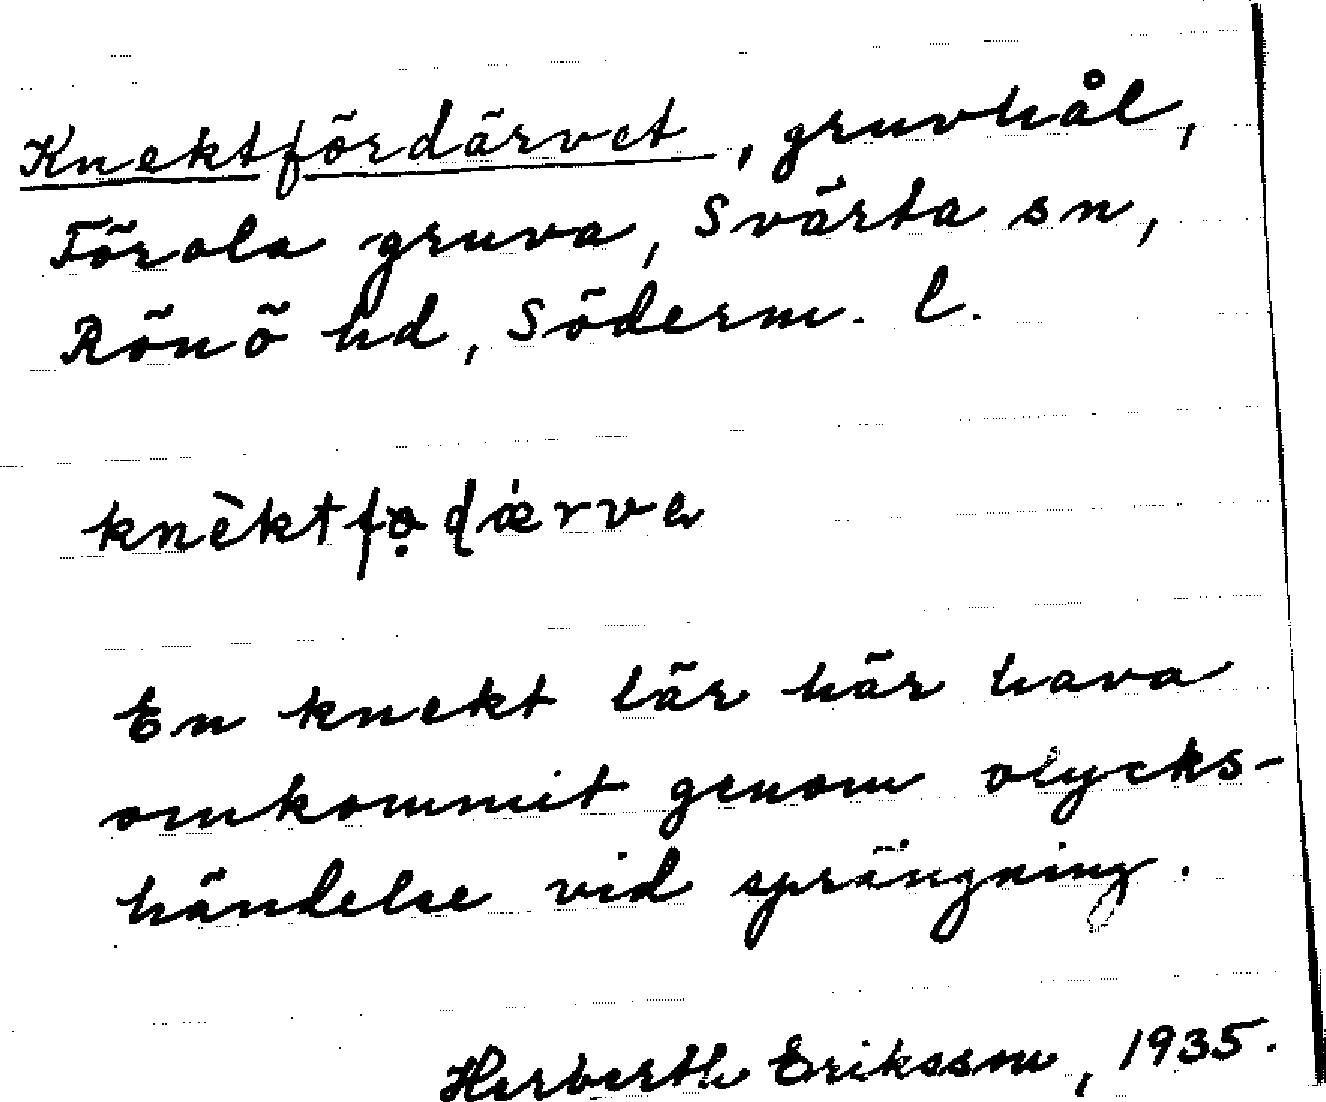 Knektfördärvet, gruvhål,
Förola gruva, Svärta sn,
Rönö hd, Söderm. l.
knèktfo̤ḍǽrve
En knekt lär här hava
omkommit genom olycks-
händelse vid sprängning.
Herberth Eriksson, 1935.